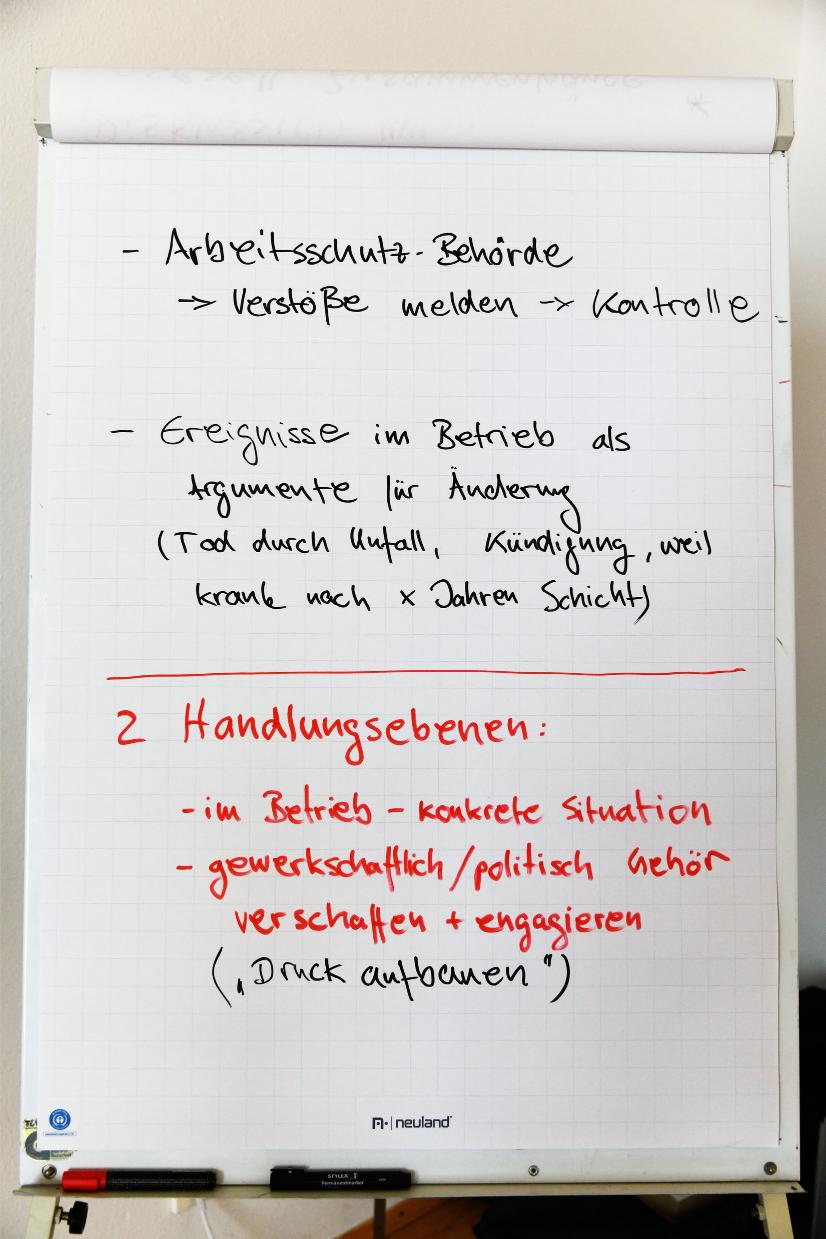 - Arbeitsschutz-Behörde
→ Verstöße melden → Kontrolle
- Ereignisse im Betrieb als
Argumente für Änderung
(Tod durch Unfall, Kündigung, weil
krank nach x Jahren Schicht)
2 Handlungsebenen:
- im Betrieb - konkrete Situation
- gewerkschaftlich/politisch Gehör
verschaffen + engagieren
(„Druck aufbauen")
neuland
STYLEX
Permanentmarker